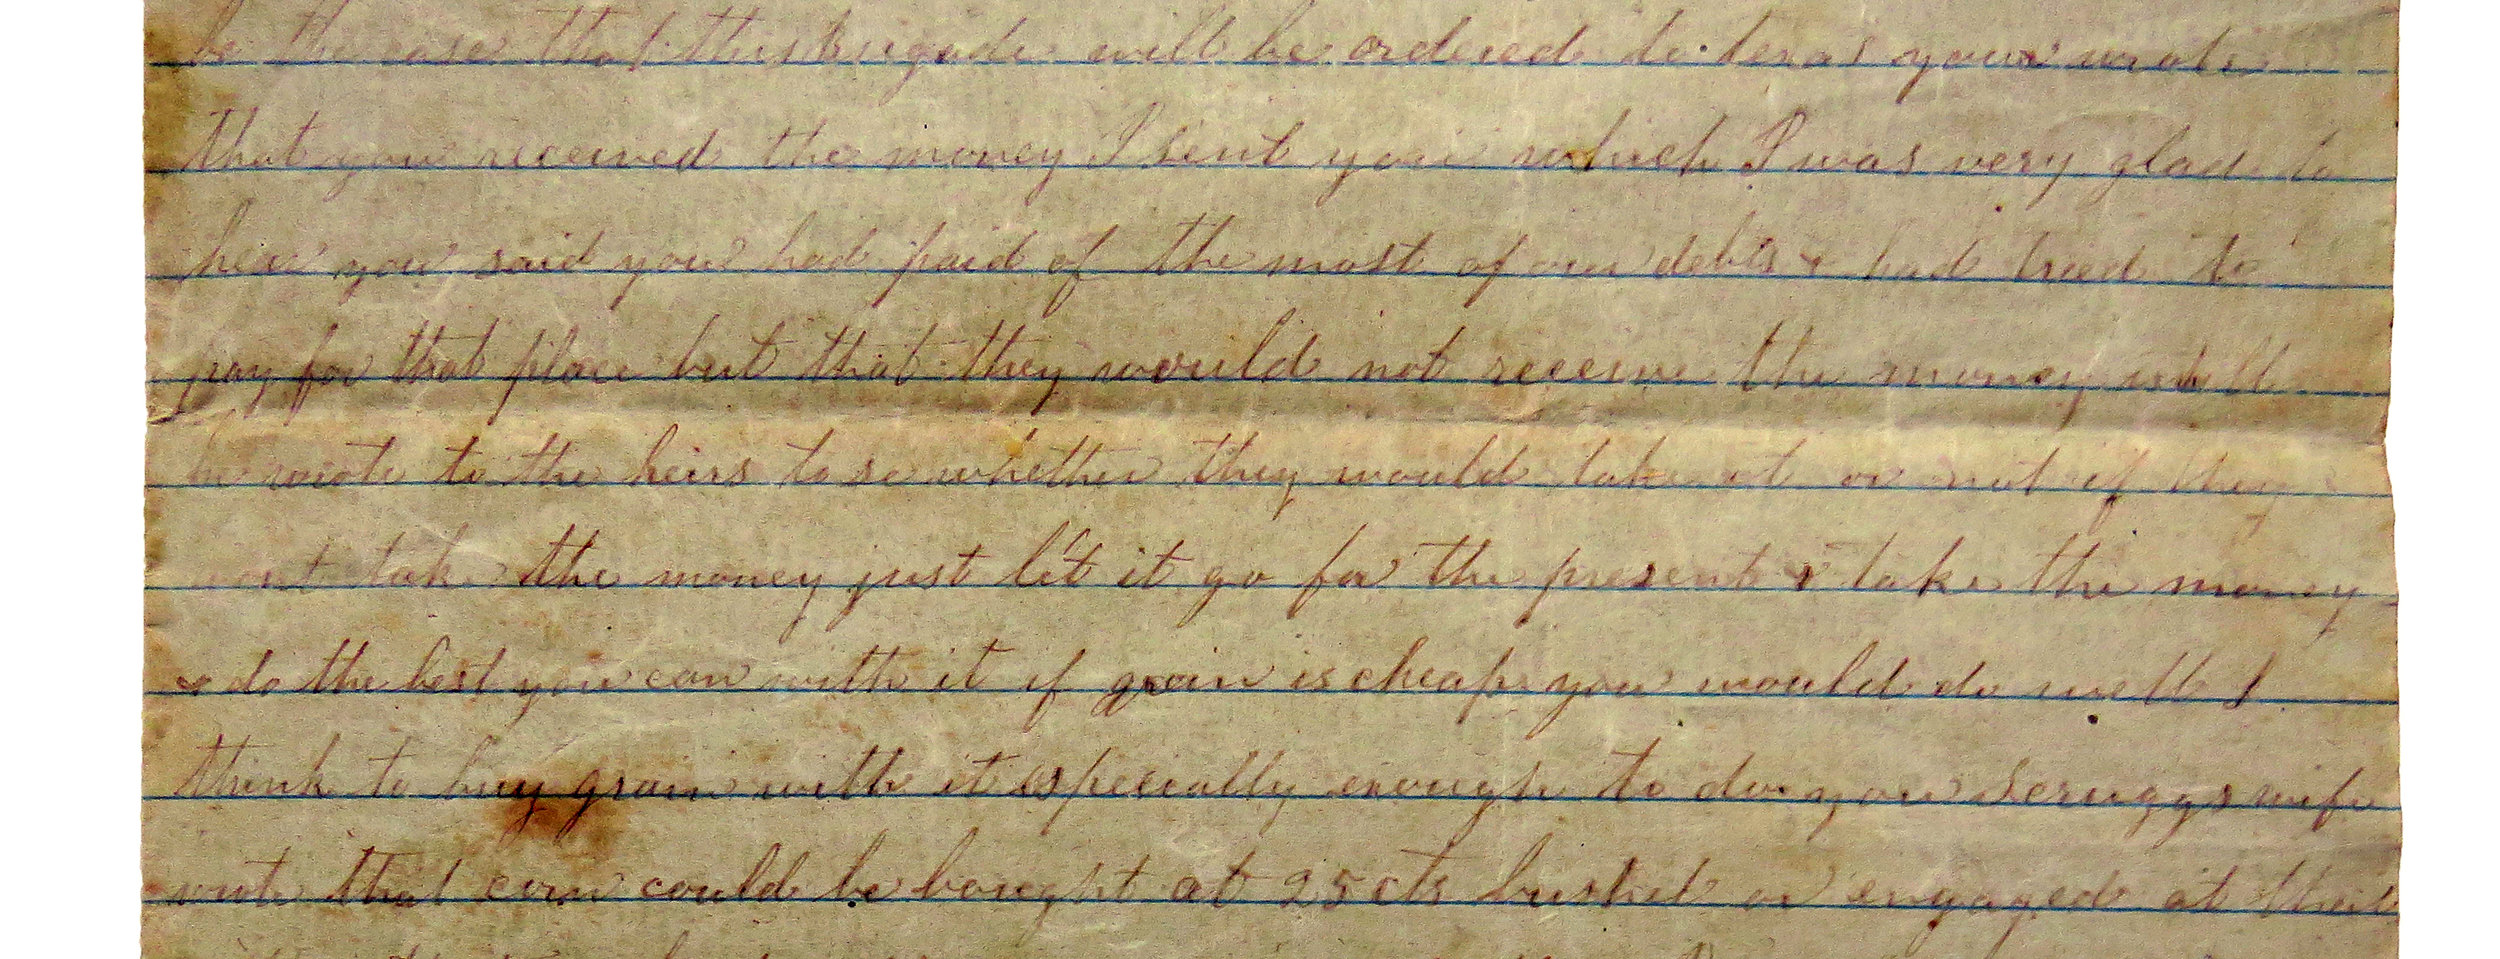 be the case that this Brigade will be ordered to texas you wrote
that you received the money I sent you which I was very glad to
hear you said you had paid of the most of our debts & had tried to
pay for that place but that they would not receive the money well
he wrote to the heirs to se whether they would take it or not if they
wont take the money just let it go for the present & take the money
& do the best you can with it if grain is cheap you would do well I
think to buy grain with it especially enough to do you Scruggs wife
wrote that corn could be bought at 25 cts bushel or engaged at that